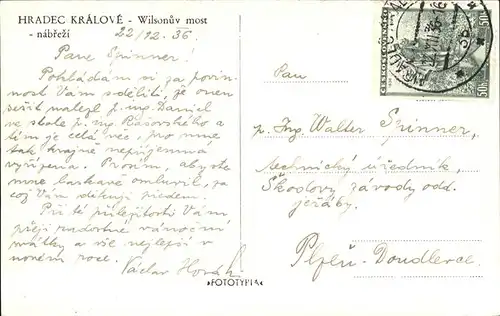 HRADEC KRÁLOVÉ - Wilsonův most
- nábřeží
22/12. 36.
Pane Spinner!
Pokládám si za povin-
nost Vám sděliti, že onen
sešit nalezl p. ing. Daniel
ve stole p. ing. Rašovského a
tím je celá věc, pro mne
tak krajně nepříjemná
vyřízena. Prosím, abyste
mne laskavě omluvil, za
což Vám děkuji předem.
Při té příležitosti Vám
přeji radostné vánoční
svátky a vše nejlepší v
novém roce.
Václav Horák
»FOTOTYPIA«
ČESKOSLOVENSKO
50h
50h
Pan
p. Ing. Walter Spinner,
technický úředník,
Škodovy závody odd.
jeřáby.
Plzeň - Doudlevce.